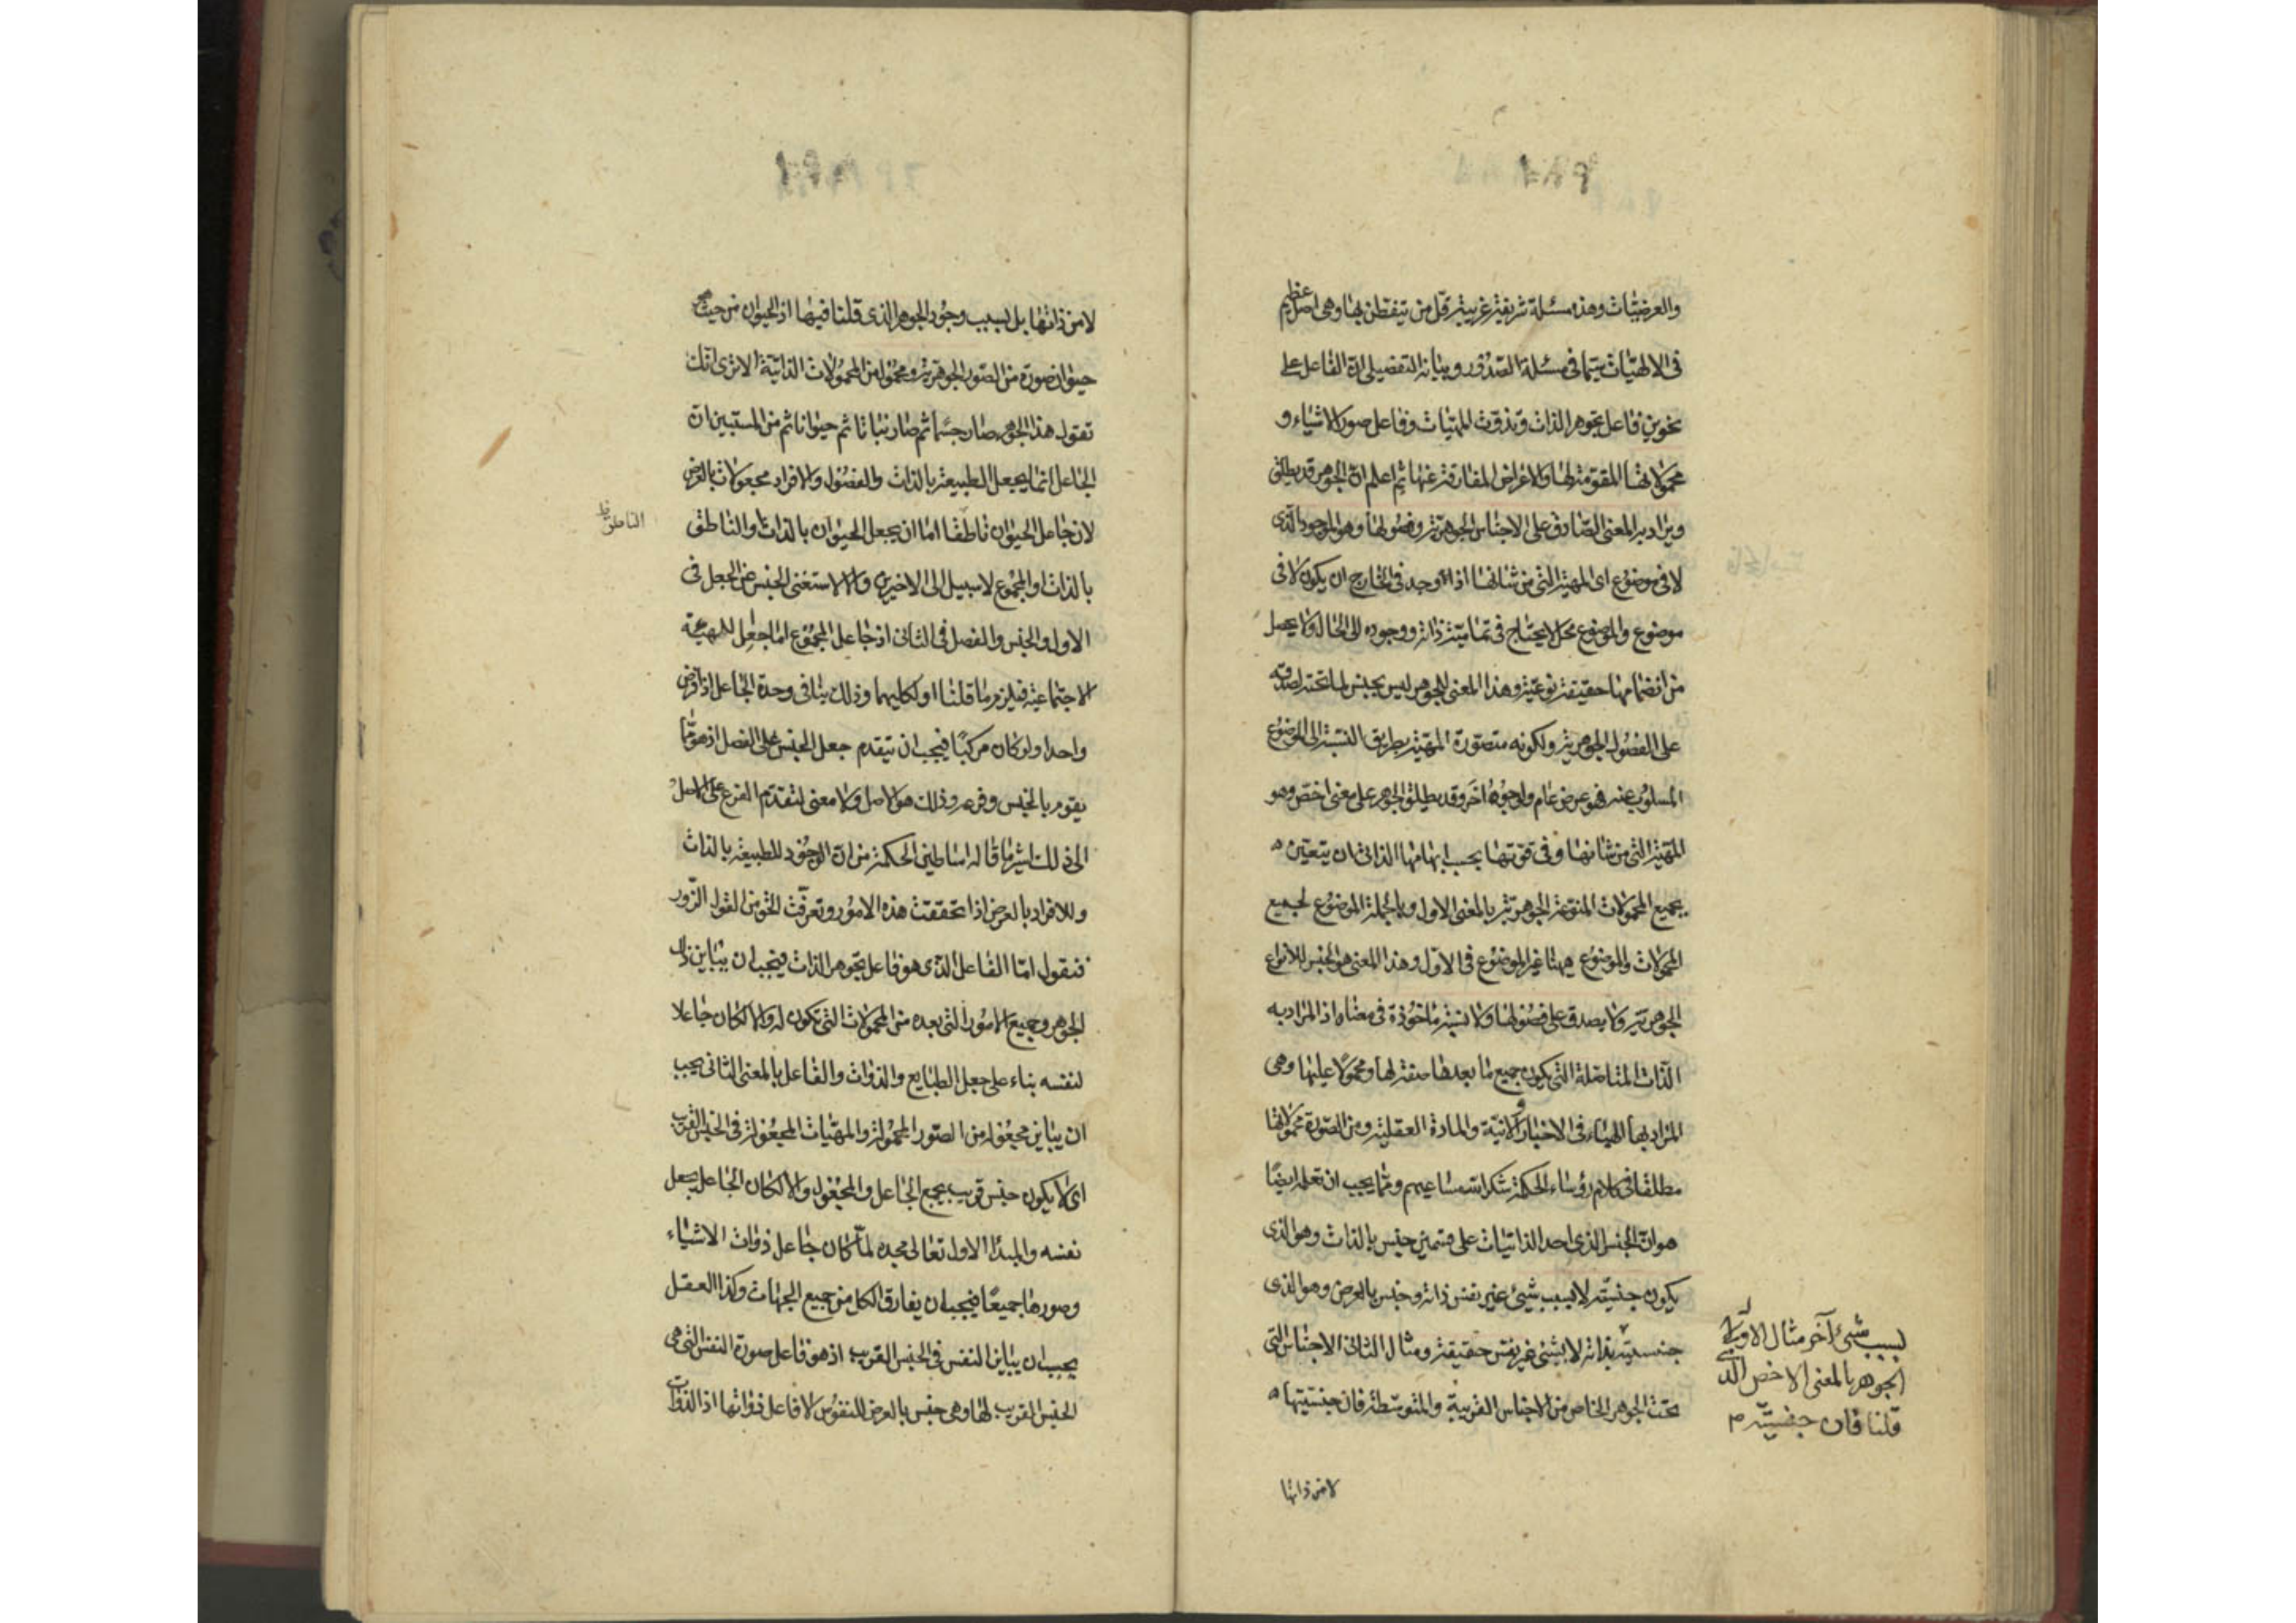 والعرضيات وهذه مسئلة شريفة غريبة قل من تيفطن بها وهى اصل عظيم
فى الالهيات سيما فى مسئلة الصدور وبيانه التفصيلى ان الفاعل على
نحوين فاعل بجوهر الذات وتذوت المهيات وفاعل صور الاشياء و
محمولاتها المقومة لها والاعراض المفارقة عنها ثم اعلم ان الجوهر قد يطلق
ويراد به المعنى الصادق على الاجناس الجوهرية وفصولها وهو الموجود الذى
لا فى موضوع اى المهية التى من شانها اذا وجد فى الخارج ان يكون لا فى
موضوع والموضوع محل لا يحتاج فى تمامية ذاته ووجوده الى الحال ولا يحصل
من انضمامها حقيقة نوعية وهذا المعنى للجوهر ليس بجنس لما تحته لصدقه
على الفصول الجوهرية ولكونه متصورة المهية بطريق النسبة الى الموضوع
المسلوب عنه فهو عرض عام ولوجوه اخر وقد يطلق الجوهر على معنى اخص وهو
المهية التى من شانها وفى قوتها بحسب ابهامها الذاتى ان يتعين
بجميع المحمولات المنوعة الجوهرية بالمعنى الاول وبالجملة الموضوع لجميع
المحمولات والموضوع ههنا غير الموضوع فى الاول وهذا المعنى هو الجنس للانواع
الجوهرية ولا يصدق على فصولها ولا نسبة ماخوذة فى معناه اذ المراد به
الذات المتاصلة التى يكون جميع ما بعدها صفة لها ومحمولا عليها وهى
المراد بها الهباء فى الاخبار و الانية والمادة العقلية ومن الصورة محمولاتها
مطلقا فى كلام رؤساء الحكمة شكر الله مساعيهم ومما يجب ان تعلم ايضا
هو ان الجنس الذى احد الذاتيات على قسمين جنس بالذات وهو الذى
يكون جنسيته لا بسبب شيئ غير نفس ذاته وجنس بالعرض وهو الذى
جنسيته بذاته لا بشئ غير نفس حقيقته ومثال الثانى الاجناس التى
تحت الجوهر الخاص من الاجناس القريبة والمتوسطة فان جنسيتها
لا من ذاتها
بسبب شئ آخر مثال الاول
الجوهر بالمعنى الاخص الذ
قلنا فان جنسيته م
لا من ذاتها بل بسبب وجود الجوهر الذى قلنا فيها اذ الحيوان من حيث هو
حيوان صورة من الصور الجوهرية ومحمولة من المحمولات الذاتية الا ترى انك
تقول هذا الجوهر صار جسما ثم صار نباتا ثم حيوانا ثم من المستبين ان
الجاعل انما يجعل الطبيعة بالذات والفصول والافراد مجعولات بالعرض
لان جاعل الحيوان ناطقا اما ان يجعل الحيوان بالذات او الناطق
الناطق فقط
بالذات او المجموع لا سبيل الى الاخيرين والا لاستغنى الجنس عن الجعل فى
الاول والجنس والفصل فى الثانى اذ جاعل المجموع اما جاعل للهيئة
الاجتماعية فيلزم ما قلنا او لكليهما وذلك ينافى وحدة الجاعل اذا فرض
واحدا ولو كان مركبا فيجب ان يتقدم جعل الجنس على الفصل اذ هو مما
يقوم بالجنس وفرعه وذلك هو الاصل ولا معنى لتقدم الفرع على الاصل
الى ذلك اشير ما قاله اساطين الحكمة من ان الوجود للطبيعة بالذات
وللافراد بالعرض اذا تحققت هذه الامور وتعرفت الحق من القول الزور
فنقول اما الفاعل الذى هو فاعل بجوهر الذات فيجب ان يباين ذلك
الجوهر وجميع الامور التى بعده من المحمولات التى تكون له والا لكان جاعلا
لنفسه بناء على جعل الطبايع والذوات والفاعل بالمعنى الثانى يجب
ان يباين مجعوله من الصور المحمولة والمهيات المجعولة فى الجنس القريب
اى لا يكون جنس قريب يجمع الجاعل والمجعول والا لكان الجاعل يجعل
نفسه والمبدا الاول تعالى مجده لما كان جاعل ذوات الاشياء
وصورها جميعا فيجب ان يفارق الكل من جميع الجهات وكذا العقل
يجب ان يباين النفس فى الجنس القريب اذ هو فاعل صورة النفس التى هى
الجنس القريب لها وهى جنس بالعرض للنفوس لا فاعل ذواتها اذ الذوات